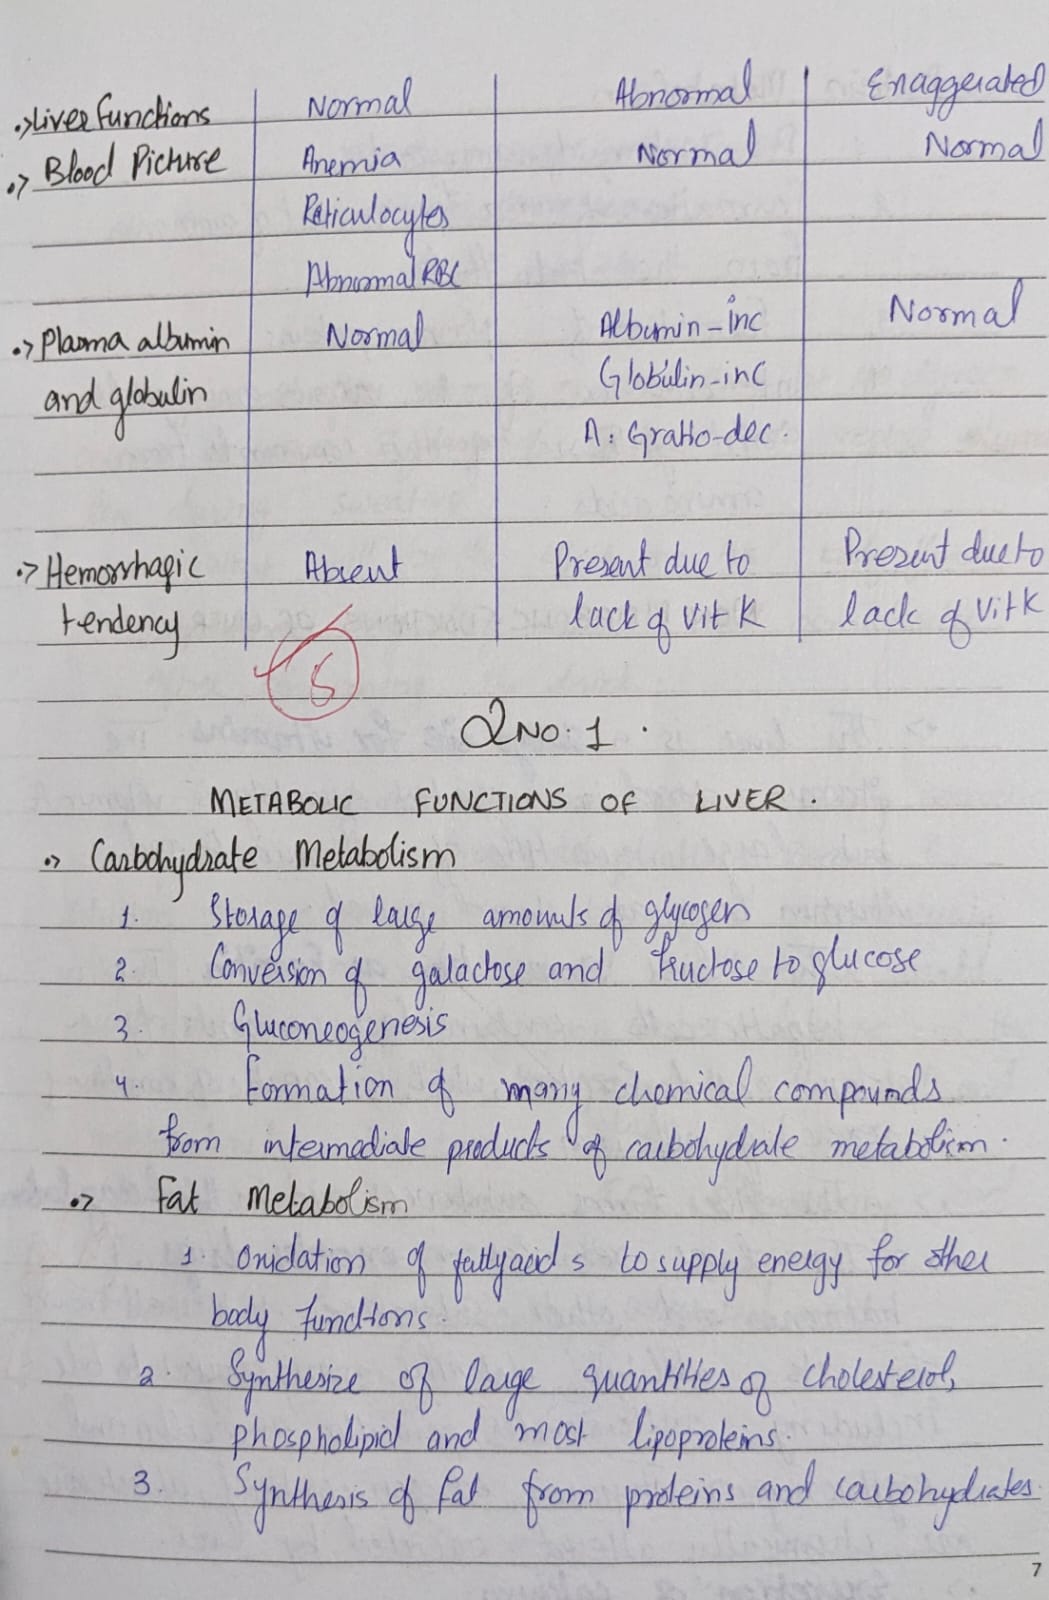 .> Liver Functions | Normal | Abnormal | Enaggerated
.> Blood Picture | Anemia | Normal | Normal
Reticulocytes
Abnormal RBC
.> Plasma albumin | Normal | Albumin-inc | Normal
and globulin | Globulin-inc
A:Gratio-dec.
.> Hemorrhagic | Absent | Present due to | Present due to
tendency | lack of Vit K | lack of Vit K
5
QNO.1.
METABOLIC FUNCTIONS OF LIVER.
.> Carbohydrate Metabolism
1. Storage of large amounts of glycogen
2. Conversion of galactose and fructose to glucose
3. Gluconeogenesis
4. Formation of many chemical compounds
from intermediate products of carbohydrate metabolism.
.> Fat Metabolism
1. Onidation of fatty acids to supply energy for other
body functions.
2. Synthesize of large quantities of cholesterol,
phospholipid and most lipoproteins.
3. Synthesis of fat from proteins and carbohydrates.
7